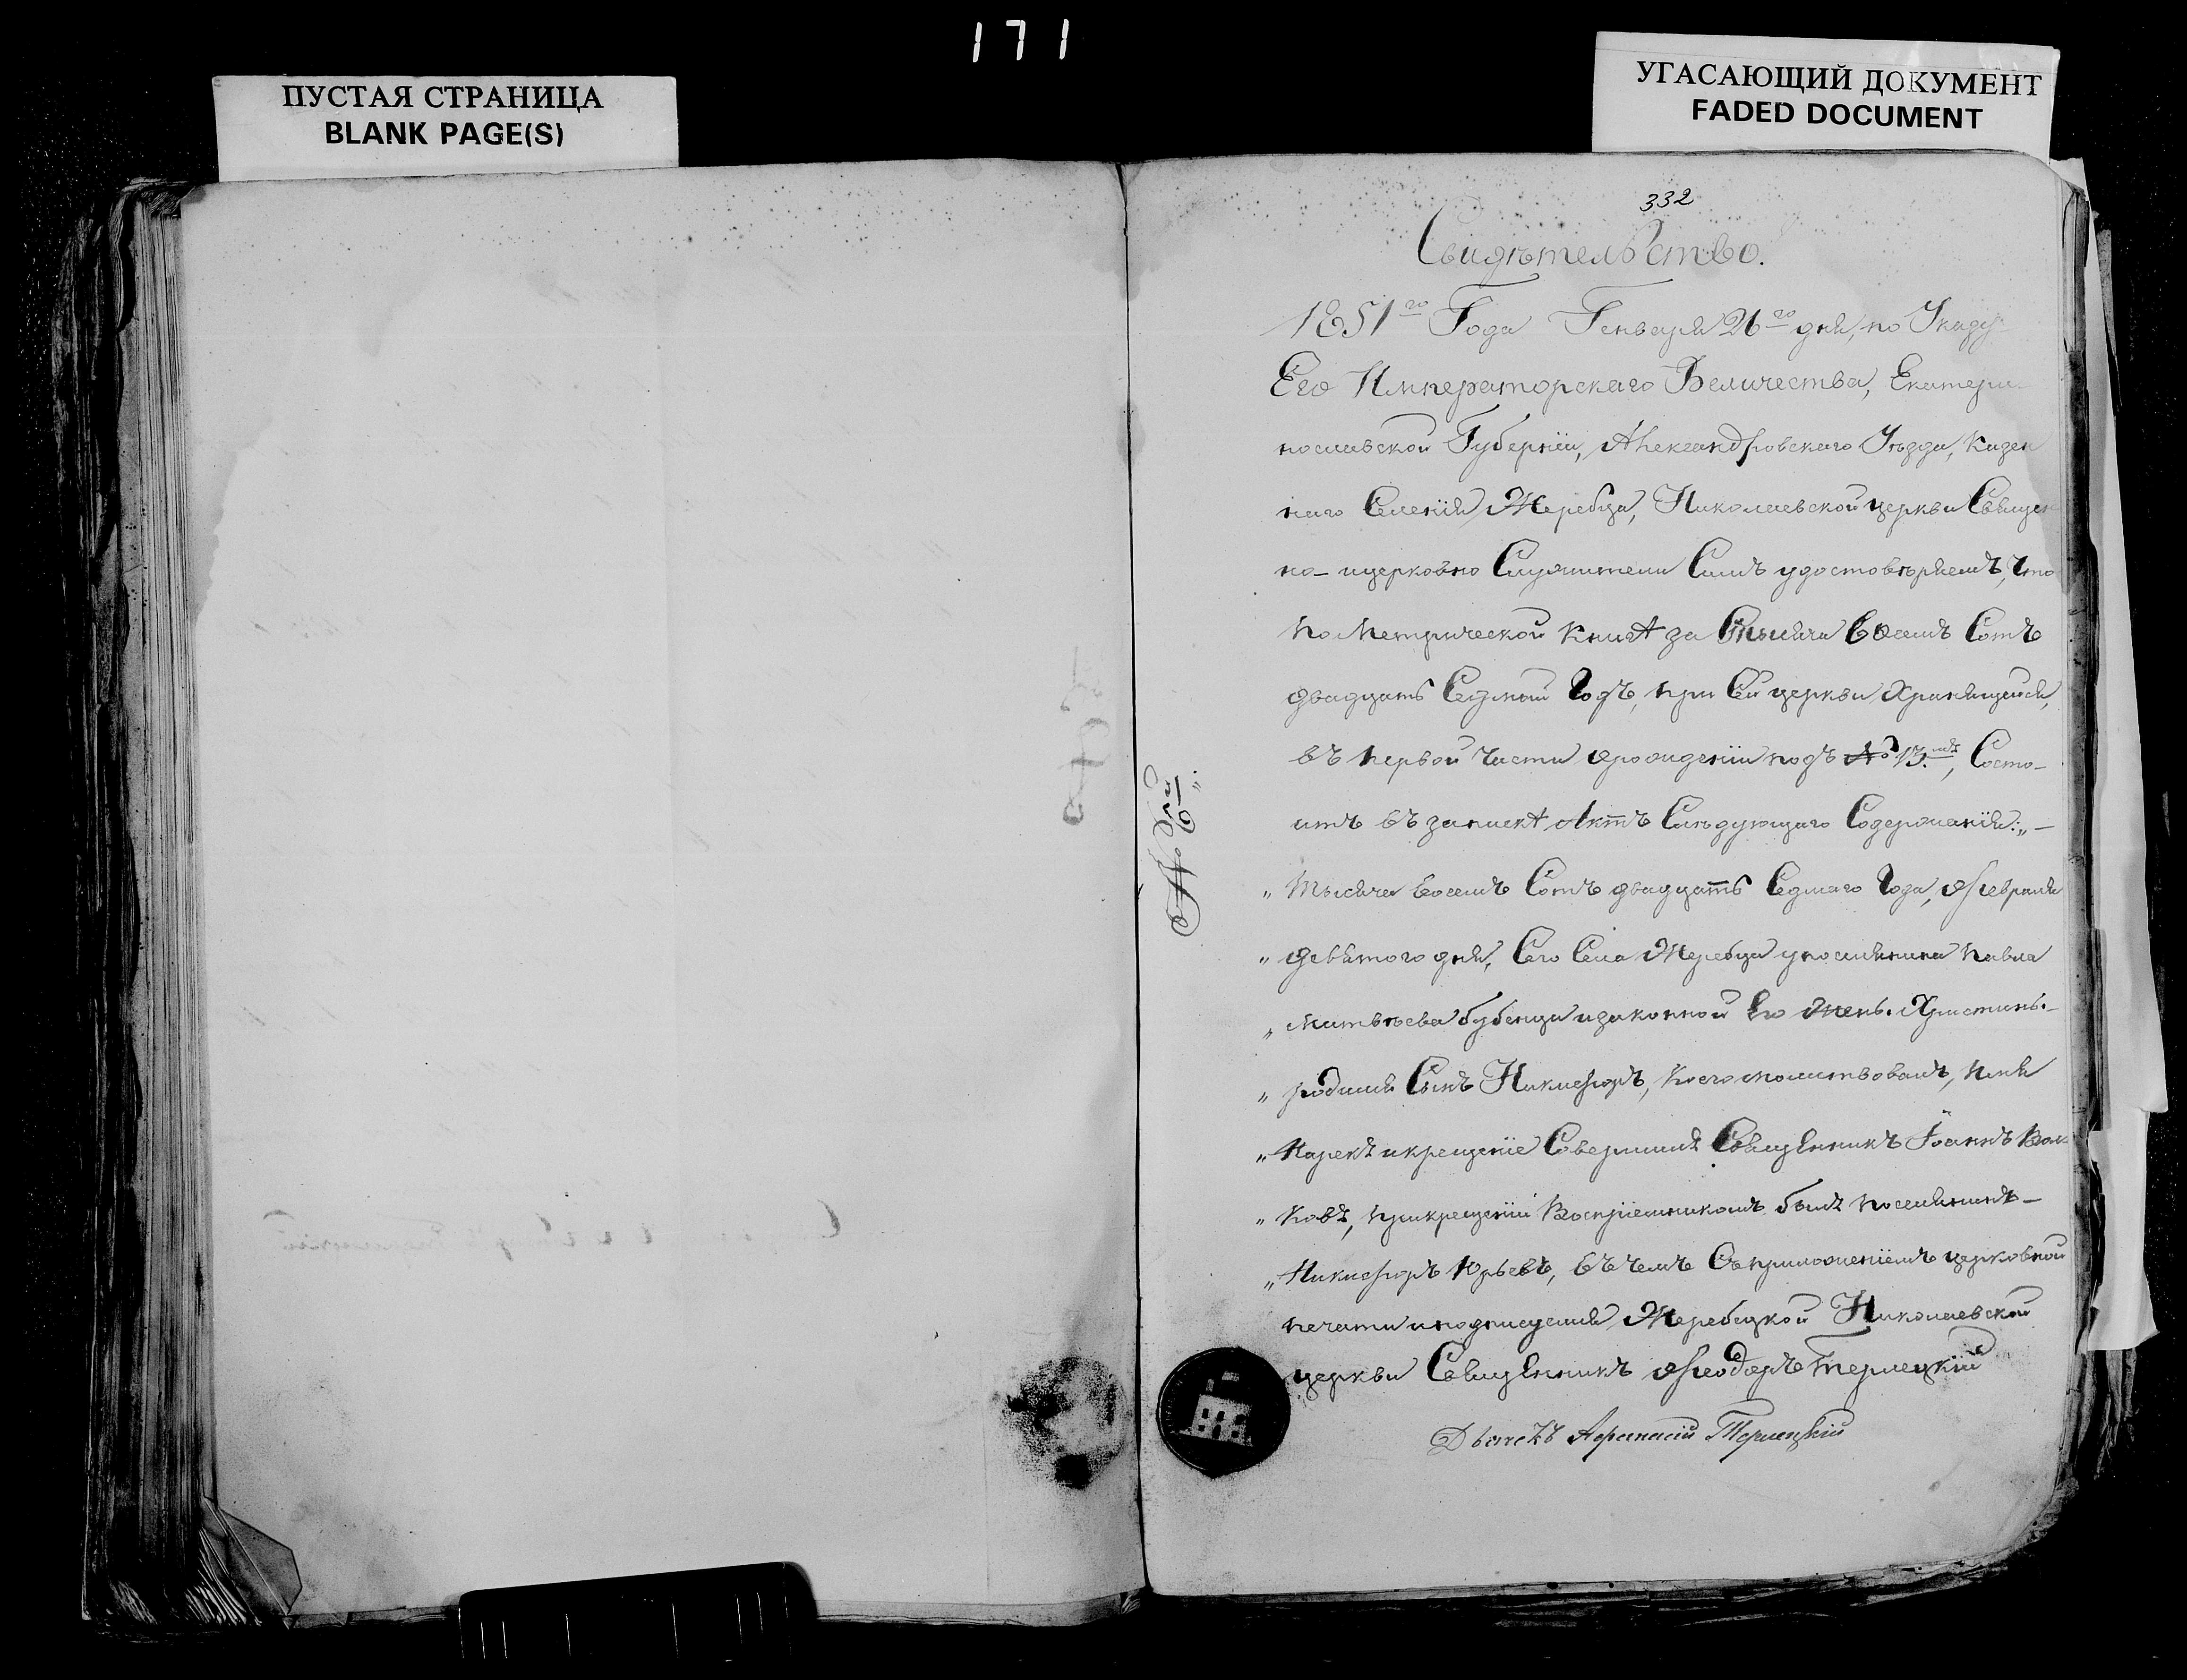 171
ПУСТАЯ СТРАНИЦА
BLANK PAGE(S)
УГАСАЮЩИЙ ДОКУМЕНТ
FADED DOCUMENT
332
Свидѣтельство.
1851го Года Генваря 26го дня, по Указу
Его Императорскаго Величества, Екатери-
нославской Губерніи, Александровскаго Уѣзда, Казен
наго Селенія Жеребца, Николаевской церкви Священ
но-ицерковно Служители Симъ удостовѣряемъ, Что
по Метрической Книгѣ за Тысяча Восемъ Сотъ
двадцать Седмый Годъ, при Сей церкви Хранящейся,
въ первой Части орожденіи подъ №13.мъ, Состо-
итъ въ запискѣ Актъ Слѣдующаго Содержанія: „—
„ Тысяча Восемъ Сотъ двадцать Седмаго Года, Февраля
„ девятого дня, Сего Села Жеребца упоселянина Павла
„ Матвѣева бубенца изаконной Его Жены Христины
„ родился Сынъ Никифоръ, Коего молитвовалъ, Имя
„ Нарекъ икрещеніе Совершилъ Священникъ Іоаннъ Вол
„ ковъ, прикрещеніи Воспріемникомъ былъ поселянинъ-
„ Никифоръ Юрьевъ, въ чемъ Съприложеніемъ церковной
печати иподписуемся Жеребецкой Николаевской
церкви Священникъ Феодоръ Терлецкій
Дьячекъ Афанасій Терлецкій
№ 6й